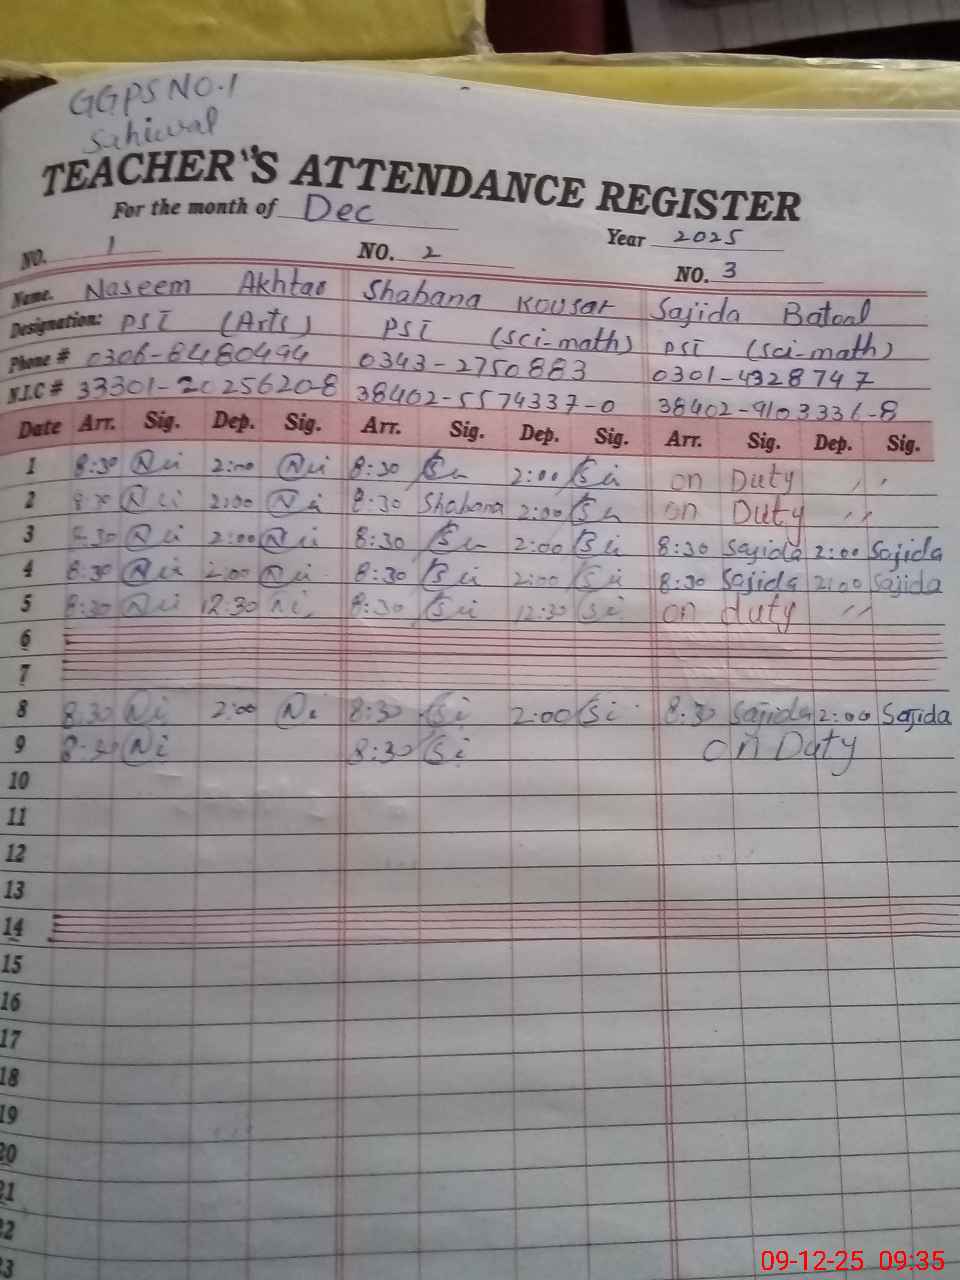 GGPS NO.1
Sahiwal
TEACHER'S ATTENDANCE REGISTER
For the month of Dec
Year 2025
NO. 1 NO. 2 NO. 3
Name. Naseem Akhtar Shabana Kousar Sajida Batool
Designation: PST (Arts) PST (sci-math) PST (sci-math)
Phone # 0306-6480494 0343-2750883 0301-4328747
N.I.C # 33301-2025620-8 38402-5574337-0 38402-9103336-8
Date Arr. Sig. Dep. Sig. Arr. Sig. Dep. Sig. Arr. Sig. Dep. Sig.
1 8:30 2:00 8:30 2:00 on Duty ,,
2 8:30 2:00 8:30 Shabana 2:00 on Duty ,,
3 8:30 2:00 8:30 2:00 8:30 Sajida 2:00 Sajida
4 8:30 2:00 8:30 2:00 8:30 Sajida 2:00 Sajida
5 8:30 12:30 8:30 12:30 on duty ,,
6
7
8 8:30 2:00 8:30 2:00 8:30 Sajida 2:00 Sajida
9 8:30 8:30 on Duty
10
11
12
13
14
15
16
17
18
19
20
21
22
23
09-12-25 09:35